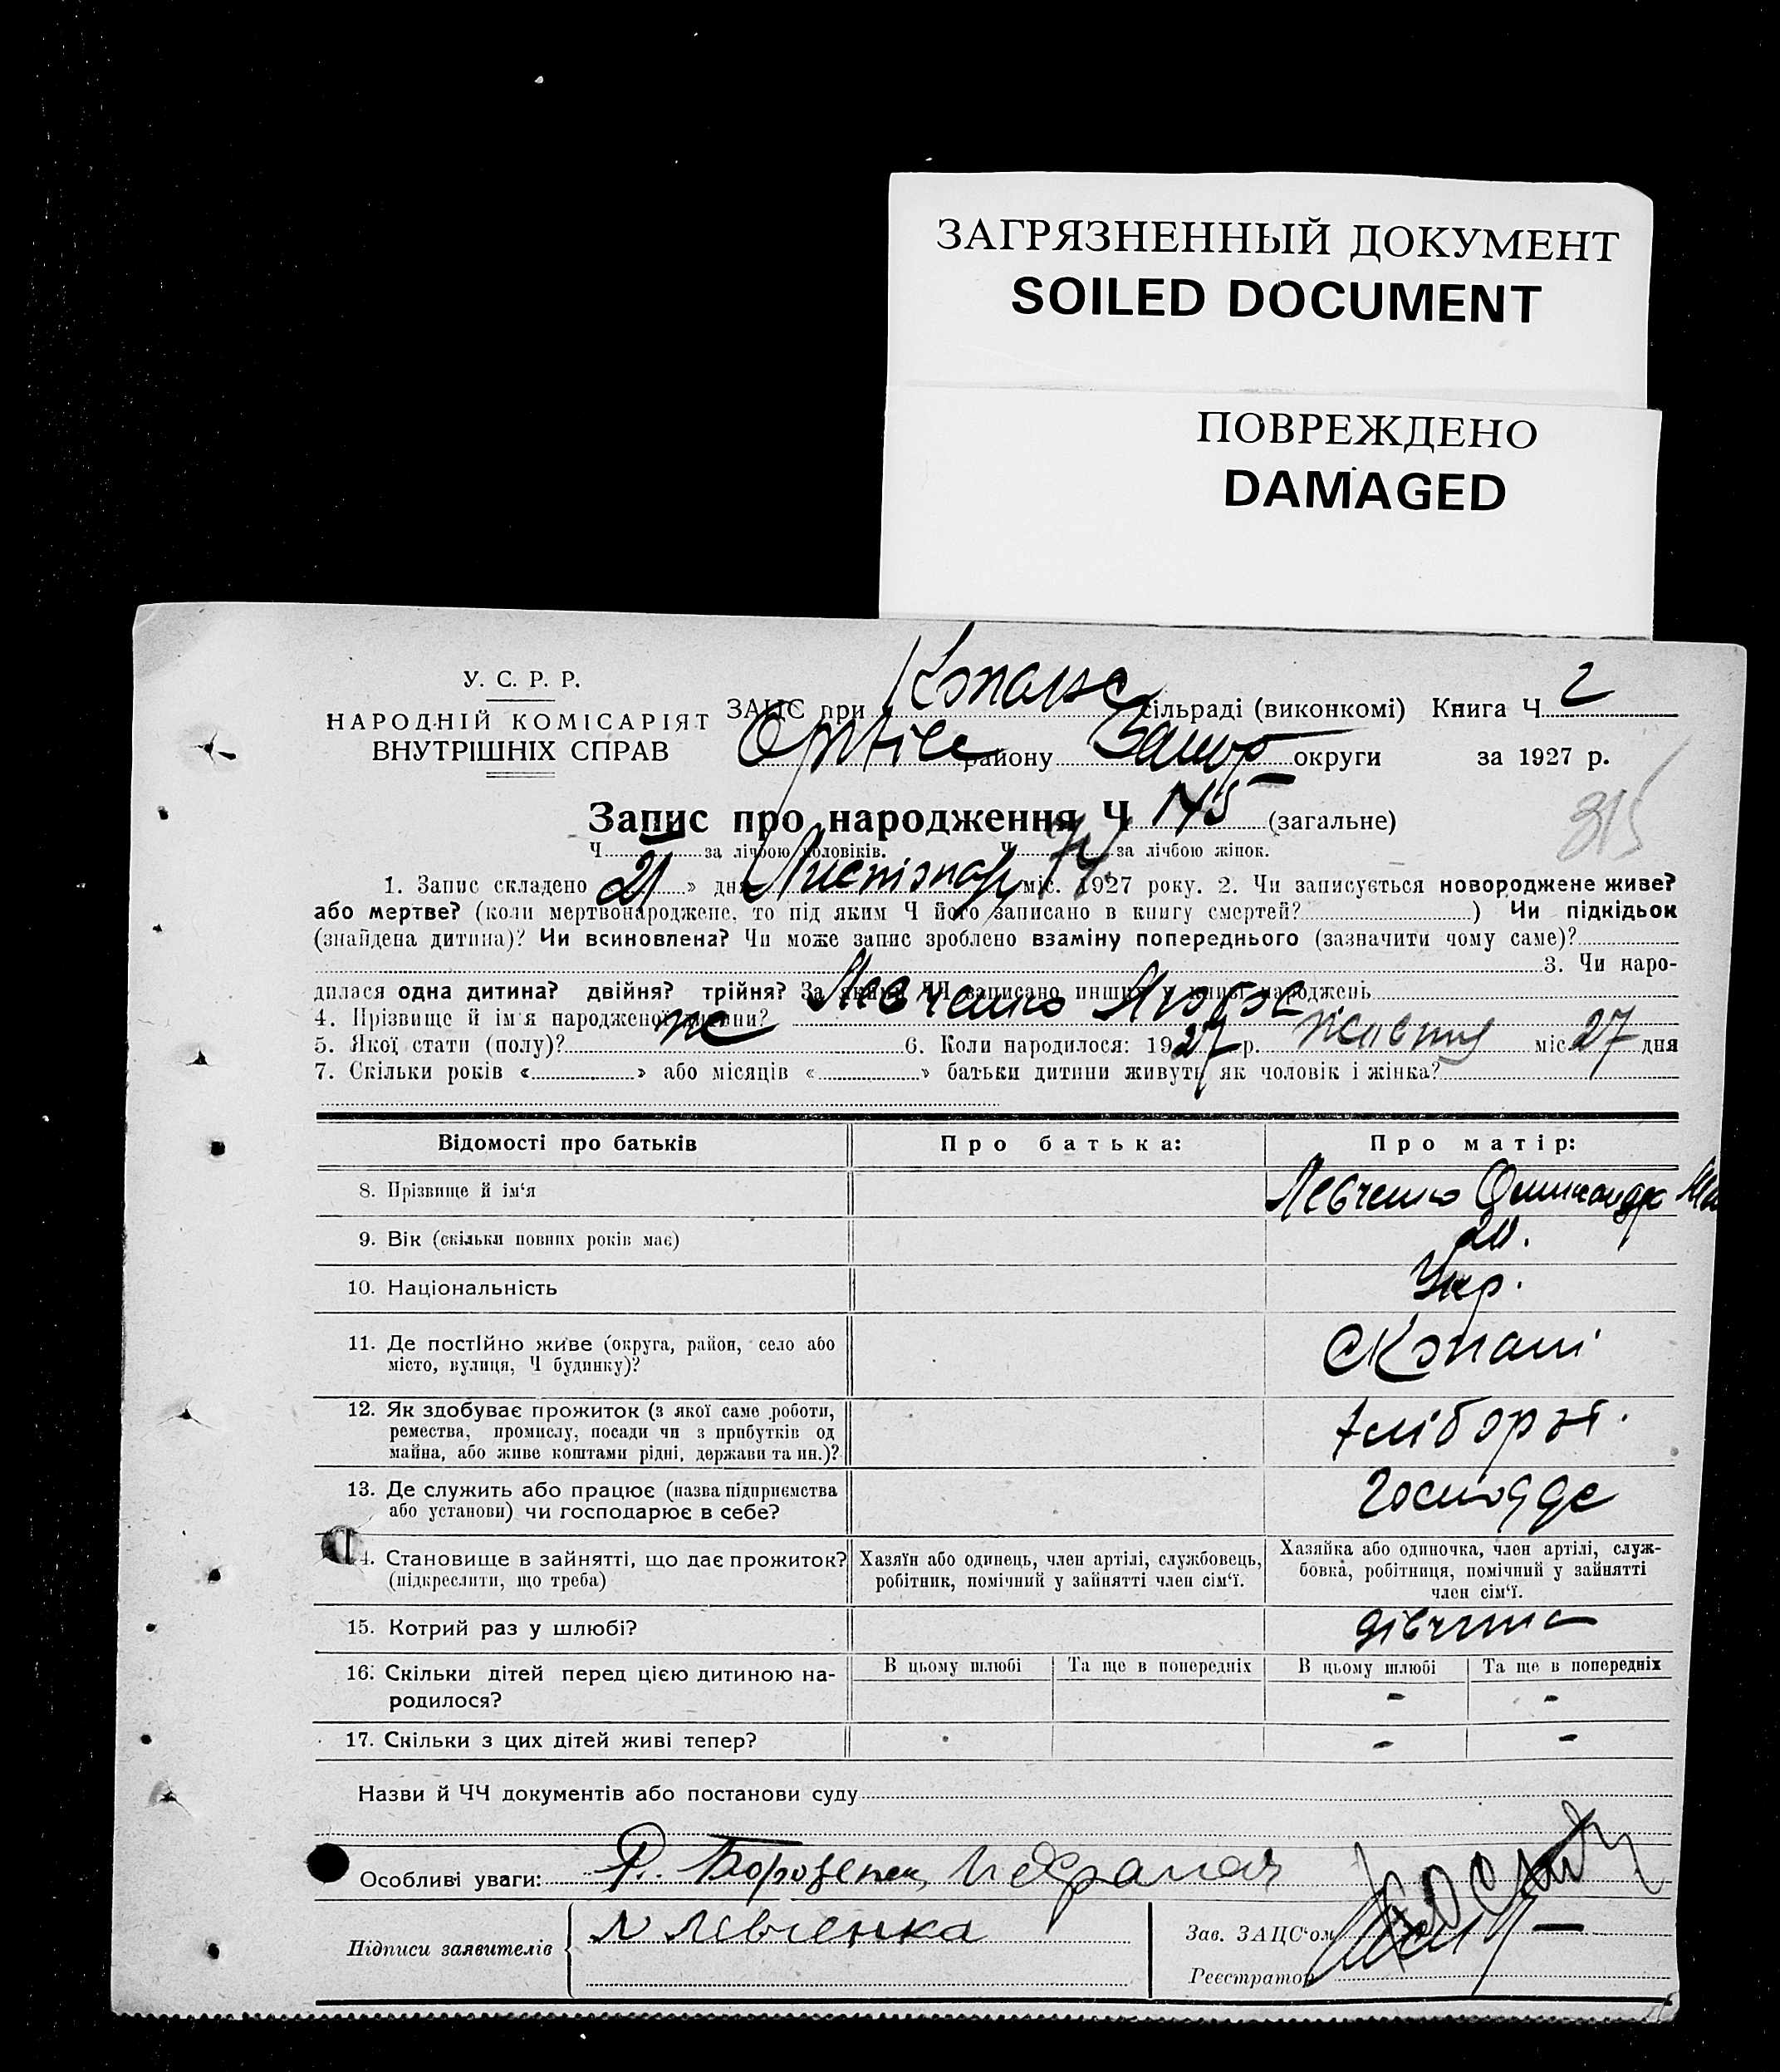 ЗАГРЯЗНЕННЫЙ ДОКУМЕНТ
SOILED DOCUMENT
ПОВРЕЖДЕНО
DAMAGED
У. С. Р. Р.
НАРОДНІЙ КОМІСАРІЯТ
ВНУТРІШНІХ СПРАВ
ЗАЦС при Копанс сільраді (виконкомі) Книга Ч 2
району Запор округи за 1927 р.
Запис про народження Ч 145 (загальне)
315
Ч за лічбою чоловіків. Ч 74 за лічбою жінок.
1. Запис складено « 21 » дня Листопад міс. 1927 року. 2. Чи записується новороджене живе?
або мертве? (коли мертвонароджене, то під яким Ч його записано в книгу смертей? ) Чи підкідьок
(знайдена дитина)? Чи всиновлена? Чи може запис зроблено взаміну попереднього (зазначити чому саме)?
3. Чи наро-
дилася одна дитина? двійня? трійня? За яким ЧЧ записано инших у книзі народжень
4. Прізвище й ім'я народженої дитини? Левченко Любов
5. Якої стати (полу)? ж 6. Коли народилося: 1927 р. Жовтня міс 27 дня
7. Скільки років « » або місяців « » батьки дитини живуть як чоловік і жінка?
Відомості про батьків Про батька: Про матір:
8. Прізвище й ім'я Левченко
9. Вік (скільки повних років має) 20.
10. Національність Укр.
11. Де постійно живе (округа, район, село або
місто, вулиця, Ч будинку)? с Копані
12. Як здобуває прожиток (з якої саме роботи,
ремества, промислу, посади чи з прибутків од
майна, або живе коштами рідні, держави та ин.)? хлібороб.
13. Де служить або працює (назва підприємства
або установи) чи господарює в себе?
14. Становище в зайнятті, що дає прожиток?
(підкреслити, що треба)
Хазяїн або одинець, член артілі, службовець,
робітник, помічний у зайнятті член сім'ї.
Хазяйка або одиночка, член артілі, служ-
бовка, робітниця, помічний у зайнятті
член сім'ї.
15. Котрий раз у шлюбі? дівчина
16. Скільки дітей перед цією дитиною на-
родилося?
В цьому шлюбі Та ще в попередніх В цьому шлюбі Та ще в попередніх
- -
17. Скільки з цих дітей живі тепер? - -
Назви й ЧЧ документів або постанови суду
Особливі уваги:
Підписи заявителів Левченка
Зав. ЗАЦС'ом
Реєстратор